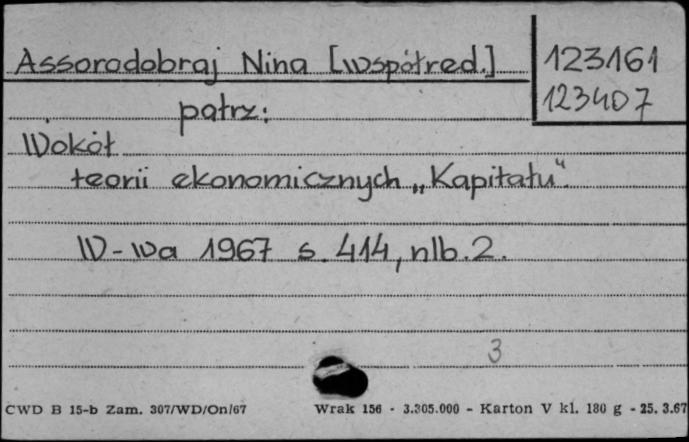 Assorodobraj Nina [współred.]
123161
123407
patrz:
Wokół
teorii ekonomicznych „Kapitału".
W-wa 1967 s. 414, nlb. 2.
3
CWD B 15-b Zam. 307/WD/On/67 Wrak 156 - 3.305.000 - Karton V kl. 180 g - 25. 3.67